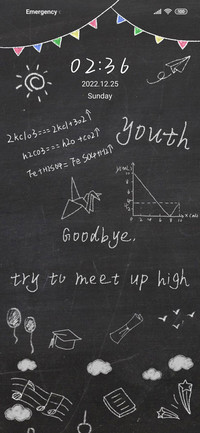 Emergency
02:36
2022.12.25
Sunday
2kclo3===2kcl+3o2↑
youth
h2co3===h2o+co2↑
Fe+H2SO4=FeSO4+H2↑
Goodbye.
try to meet up high